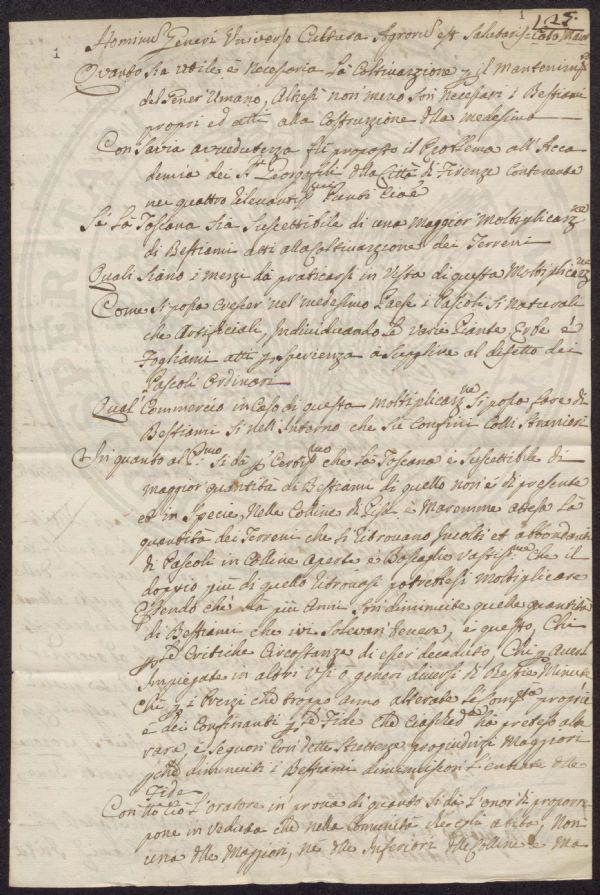 1 125.
Hominum Generi Universo Cultura Agrorum est Salutaris
1
Quanto sia utile e Necessaria La Coltivazione p il Mantenim.to
del Gener Umano, Altresì non meno Son Necessari i Bestiami
propri ed atti alla Costruzione dlla medesima
Con Savia avvedutezza fù proposto il Problema all'Acca
demia dei Georgofili dlla Città di Firenze Contenente
nei quattro Rilevanti Punti Cioè
Se La Toscana Sia Suscettibile di una Maggior Moltiplicaz.ne
di Bestiami atti alla Coltivazione dei Terreni
Quali Siano i mezzi da praticarsi in Vista di questa Moltiplicaz.ne
Come Si possa Crescer nel medesimo Paese i Pascoli Si naturali
che Artificiali, Individuando Le Varie Piante Erbe è
Fogliami atti p Sperienza a Supplire al difetto dei
Pascoli Ordinari
Qual Commercio in Caso di questa Moltiplicaz.ne Si possa fare di
Bestiami Si nell'Interno che Su Confini Colli Stranieri
In quanto al P.mo Si dà p Certis.mo che La Toscana è Suscettibile di
maggior quantità di Bestiami di quello non è di presente
et in Specie nelle Colline di Pisa e Maremme attesa La
quantità dei Terreni che Si ritrovano Incolti et abbondanti
di Pascoli in Colline aperte e Boscaglie Vastissime Che il
doppio più di quello ritrovasi potrebbesi Moltiplicare
Essendo chè da più Anni Son diminuite quelle quantità
di Bestiami che ivi Solevasi tenere, e questo, Chi
Critiche Circostanze di esser decaduto, Chi p Averli
Impiegate in altri Usi o generi diversi di Bestie Minute
Chi p i Prezzi che troppo anno alterate Le propria
e dei Confinanti Fide Che ha preteso
e Seguon Così dette Strettezze pregiudizi Maggiori
pche diminuiti i Bestiami diminuiscon L'entrate dlle
Fide
Con tto Ciò L'oratore in prova di quanto Si dà L'onor di proporre
pone in Veduta che nella Comunità
una dlle Maggiori, ne dlle Inferiori dlle Colline e Ma